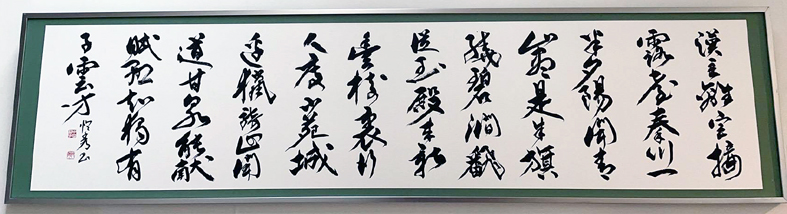 漢主離宮接
露臺秦川一
半夕陽開青
山盡是朱旗
繞碧澗飜
從玉殿來新
豐樹裏行
人度小苑城
邊獵騎回聞
道甘泉能獻
賦懸知獨有
子雲才